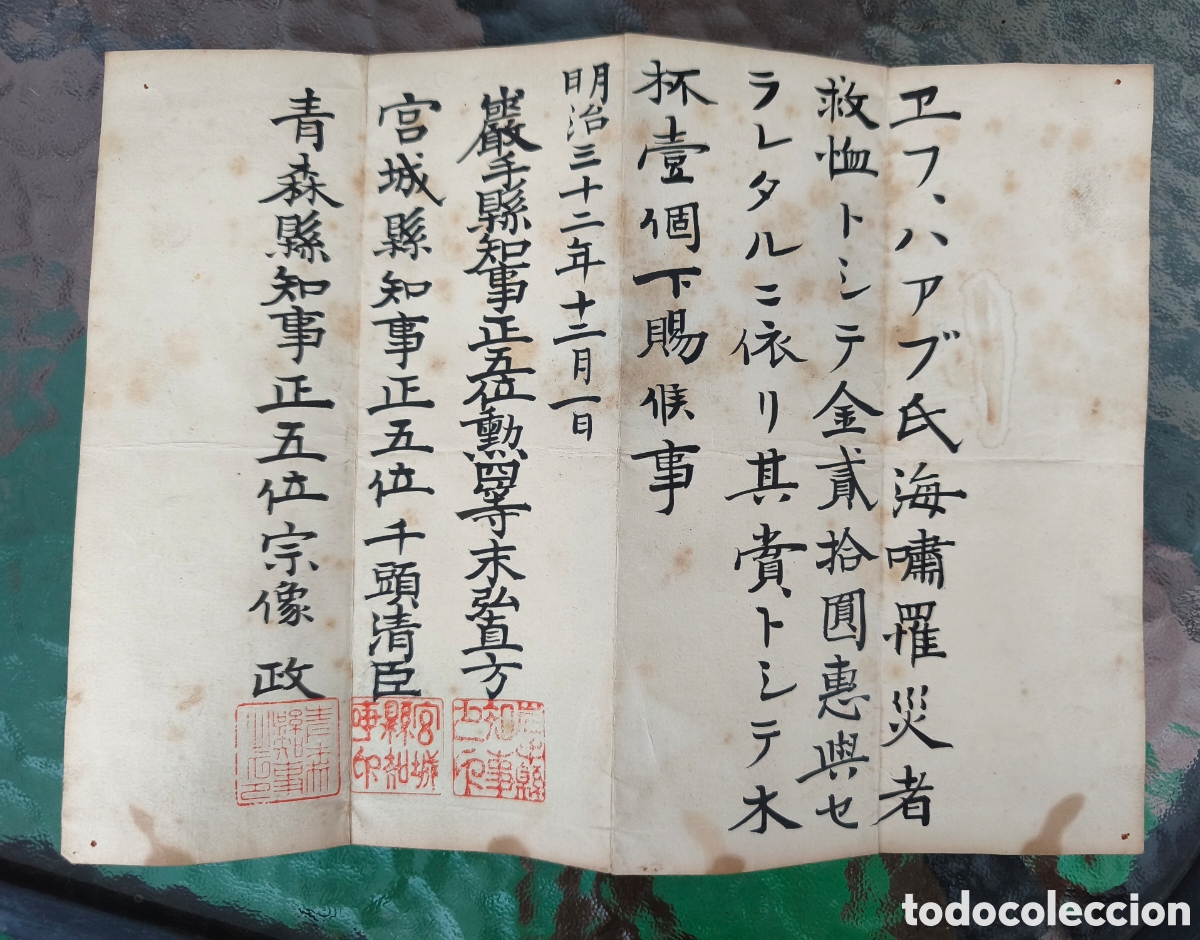 ヱフ、ハアブ氏海嘯罹災者
救恤トシテ金貳拾圓惠與セ
ラレタルニ依リ其賞トシテ木
杯壹個下賜候事
明治三十二年十二月一日
巖手縣知事正五位勲四等末弘直方
宮城縣知事正五位千頭清臣
青森縣知事正五位宗像政
宮城縣知事印
todocoleccion